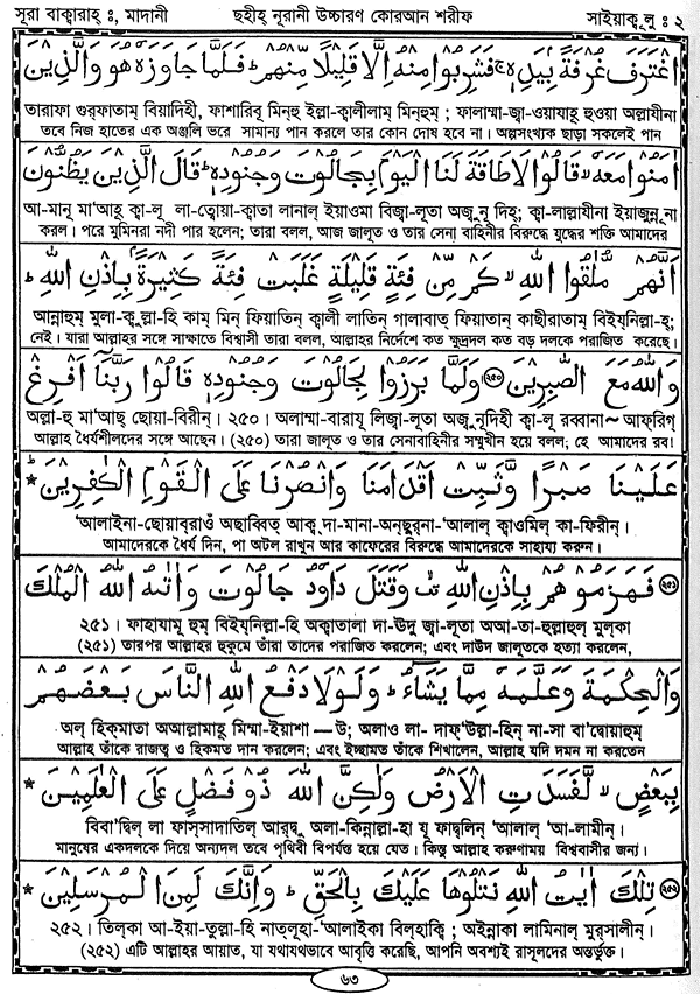 সূরা বাক্বারাহ্ ঃ, মাদানী ছহীহ্ নূরানী উচ্চারণ কোরআন শরীফ সাইয়াক্বূলু ঃ ২
اغْتَرَفَ غُرْفَةً بِيَدِهٖ ۚ فَشَرِبُوا مِنْهُ اِلَّا قَلِيلًا مِّنْهُمْ ۗ فَلَمَّا جَاوَزَهُ هُوَ وَالَّذِينَ
তারাফা গুর্ফাতাম্ বিয়াদিহী, ফাশারিবূ মিন্হু ইল্লা-ক্বালীলাম্ মিন্হুম্ ; ফালাম্মা-জ্বা-ওয়াযাহূ হুওয়া অল্লাযীনা
তবে নিজ হাতের এক অঞ্জলি ভরে সামান্য পান করলে তার কোন দোষ হবে না। অল্পসংখ্যক ছাড়া সকলেই পান
اٰمَنُوا مَعَهُ ۙ قَالُوا لَا طَاقَةَ لَنَا الْيَوْمَ بِجَالُوتَ وَجُنُودِهٖ ۗ قَالَ الَّذِينَ يَظُنُّونَ
আ-মানূ মা'আহূ ক্বা-লূ লা-ত্বোয়া-ক্বাতা লানাল্ ইয়াওমা বিজ্বা-লূতা অজুনূ দিহ্; ক্বা-লাল্লাযীনা ইয়াজুন্নূ না
করল। পরে মুমিনরা নদী পার হলেন; তারা বলল, আজ জালূত ও তার সেনা বাহিনীর বিরুদ্ধে যুদ্ধের শক্তি আমাদের
اَنَّهُمْ مُّلٰقُوا اللهِ ۙ كَمْ مِّنْ فِئَةٍ قَلِيلَةٍ غَلَبَتْ فِئَةً كَثِيرَةً ۢ بِاِذْنِ اللهِ ۗ
আন্নাহুম্ মুলা-ক্বুল্লা-হি কাম্ মিন্ ফিয়াতিন্ ক্বালী লাতিন্ গালাবাত্ ফিয়াতান্ কাছীরাতাম্ বিইয্নিল্লা-হ্;
নেই। যারা আল্লাহর সঙ্গে সাক্ষাতে বিশ্বাসী তারা বলল, আল্লাহর নির্দেশে কত ক্ষুদ্রদল কত বড় দলকে পরাজিত করেছে।
وَاللهُ مَعَ الصّٰبِرِينَ ﴿২৫০﴾ وَلَمَّا بَرَزُوا لِجَالُوتَ وَجُنُودِهٖ قَالُوا رَبَّنَا اَفْرِغْ
অল্লা-হু মা'আছ্ ছোয়া-বিরীন্। ২৫০। অলাম্মা-বারাযূ লিজ্বা-লূতা অজুনূদিহী ক্বা-লূ রব্বানা~ আফ্রিগ্
আল্লাহ ধৈর্যশীলদের সঙ্গে আছেন। (২৫০) তারা জালূত ও তার সেনাবাহিনীর সম্মুখীন হয়ে বলল; হে আমাদের রব!
عَلَيْنَا صَبْرًا وَّثَبِّتْ اَقْدَامَنَا وَانْصُرْنَا عَلَى الْقَوْمِ الْكٰفِرِينَ ۗ *
'আলাইনা-ছোয়াব্রাওঁ অছাব্বিত্ আক্ব্দা-মানা-অন্ছুর্না-'আলাল্ ক্বাওমিল্ কা-ফিরীন্।
আমাদেরকে ধৈর্য দিন, পা অটল রাখুন আর কাফেরের বিরুদ্ধে আমাদেরকে সাহায্য করুন।
﴿২৫১﴾ فَهَزَمُوهُمْ بِاِذْنِ اللهِ ۙ وَقَتَلَ دَاوٗدُ جَالُوتَ وَاٰتٰهُ اللهُ الْمُلْكَ
২৫১। ফাহাযামূ হুম্ বিইয্নিল্লা-হি অক্বাতালা দা-ঊদু জ্বা-লূতা অআ-তা-হুল্লাহুল্ মুল্কা
(২৫১) তারপর আল্লাহর হুকুমে তাঁরা তাদের পরাজিত করলেন; এবং দাউদ জালূতকে হত্যা করলেন,
وَالْحِكْمَةَ وَعَلَّمَهُ مِمَّا يَشَاءُ ۗ وَلَوْلَا دَفْعُ اللهِ النَّاسَ بَعْضَهُمْ
অল্ হিক্মাতা অআল্লামাহূ মিম্মা-ইয়াশা — উ; অলাও লা- দাফ্'উল্লা-হিন্ না-সা বা'দ্বোয়াহুম্
আল্লাহ তাঁকে রাজত্ব ও হিকমত দান করলেন; এবং ইচ্ছামত তাঁকে শিখালেন, আল্লাহ যদি দমন না করতেন
بِبَعْضٍ ۙ لَّفَسَدَتِ الْاَرْضُ وَلٰكِنَّ اللهَ ذُو فَضْلٍ عَلَى الْعٰلَمِينَ *
বিবা'দ্বিল্ লা ফাস্সাদাতিল্ আর্দ্বু অলা-কিন্নাল্লা-হা যূ ফাদ্বলিন্ 'আলাল্ 'আ-লামীন্।
মানুষের একদলকে দিয়ে অন্যদল তবে পৃথিবী বিপর্যস্ত হয়ে যেত। কিন্তু আল্লাহ করুণাময় বিশ্ববাসীর জন্য।
﴿২৫২﴾ تِلْكَ اٰيٰتُ اللهِ نَتْلُوهَا عَلَيْكَ بِالْحَقِّ ۗ وَاِنَّكَ لَمِنَ الْمُرْسَلِينَ *
২৫২। তিল্কা আ-ইয়া-তুল্লা-হি নাত্লূহা-'আলাইকা বিল্হাক্বি ; অইন্নাকা লামিনাল্ মুর্সালীন্।
(২৫২) এটি আল্লাহর আয়াত, যা যথাযথভাবে আবৃত্তি করেছি, আপনি অবশ্যই রাসূলদের অন্তর্ভুক্ত।
৬৩